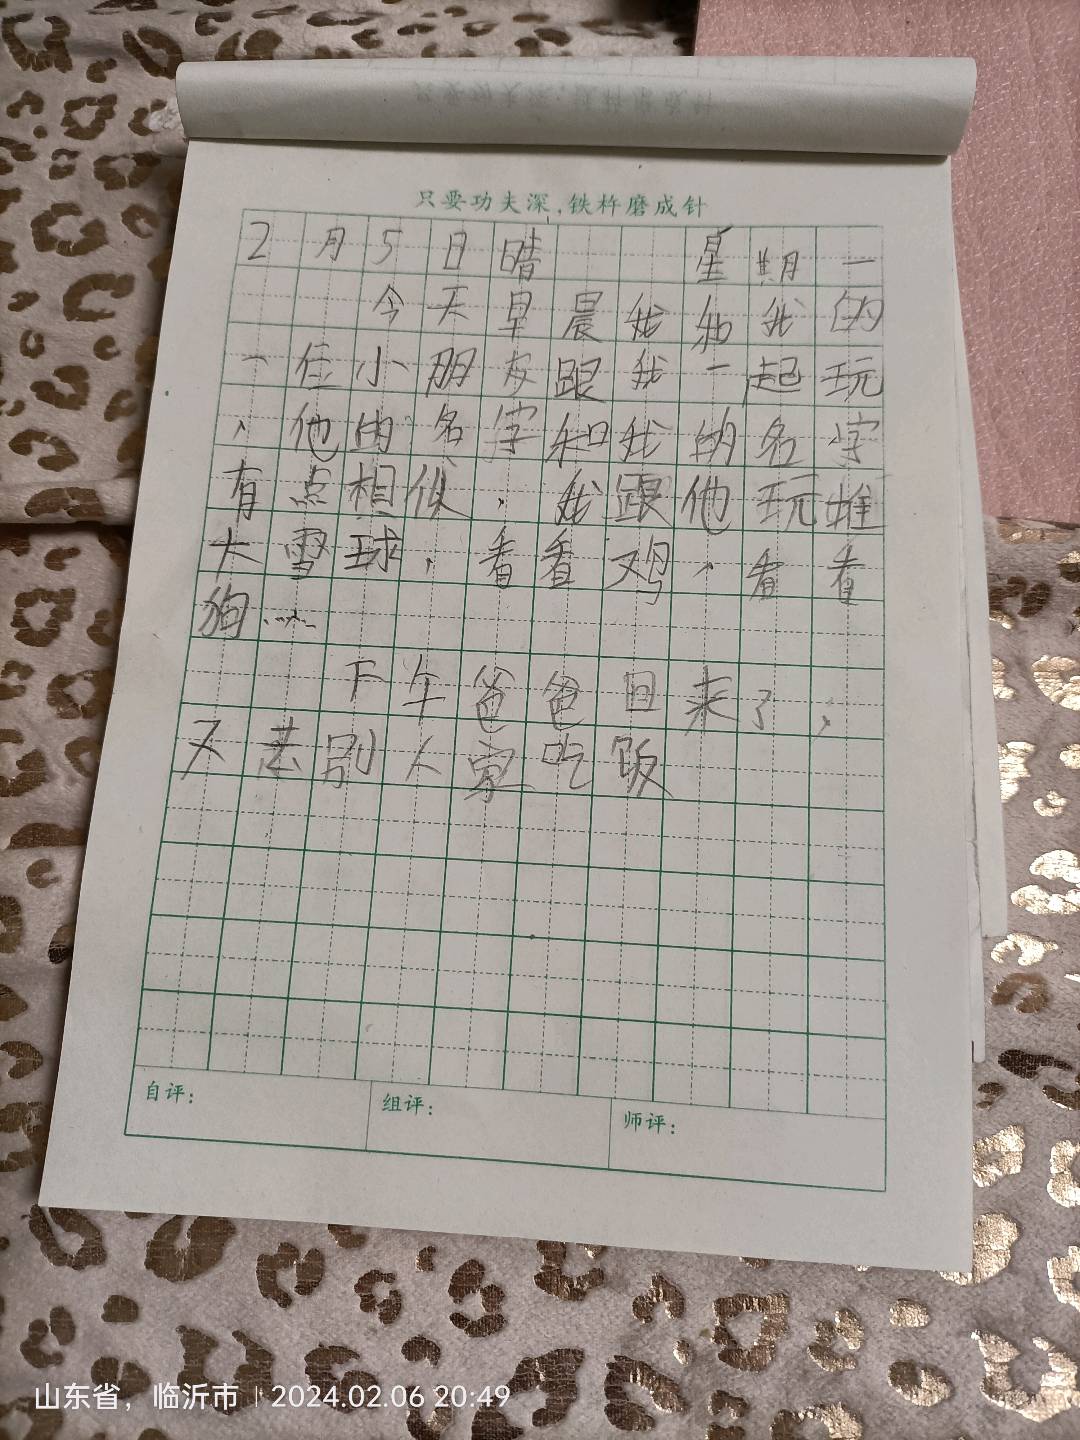 只要功夫深,铁杵磨成针
2月5日晴 星期一
今天早晨我和我的
一位小朋友跟我一起玩
，他的名字和我的名字
有点相似，我跟他玩堆
大雪球，看看鸡，看看
狗……
下午爸爸回来了，
又去别人家吃饭
自评： 组评： 师评：
山东省，临沂市 | 2024.02.06 20:49